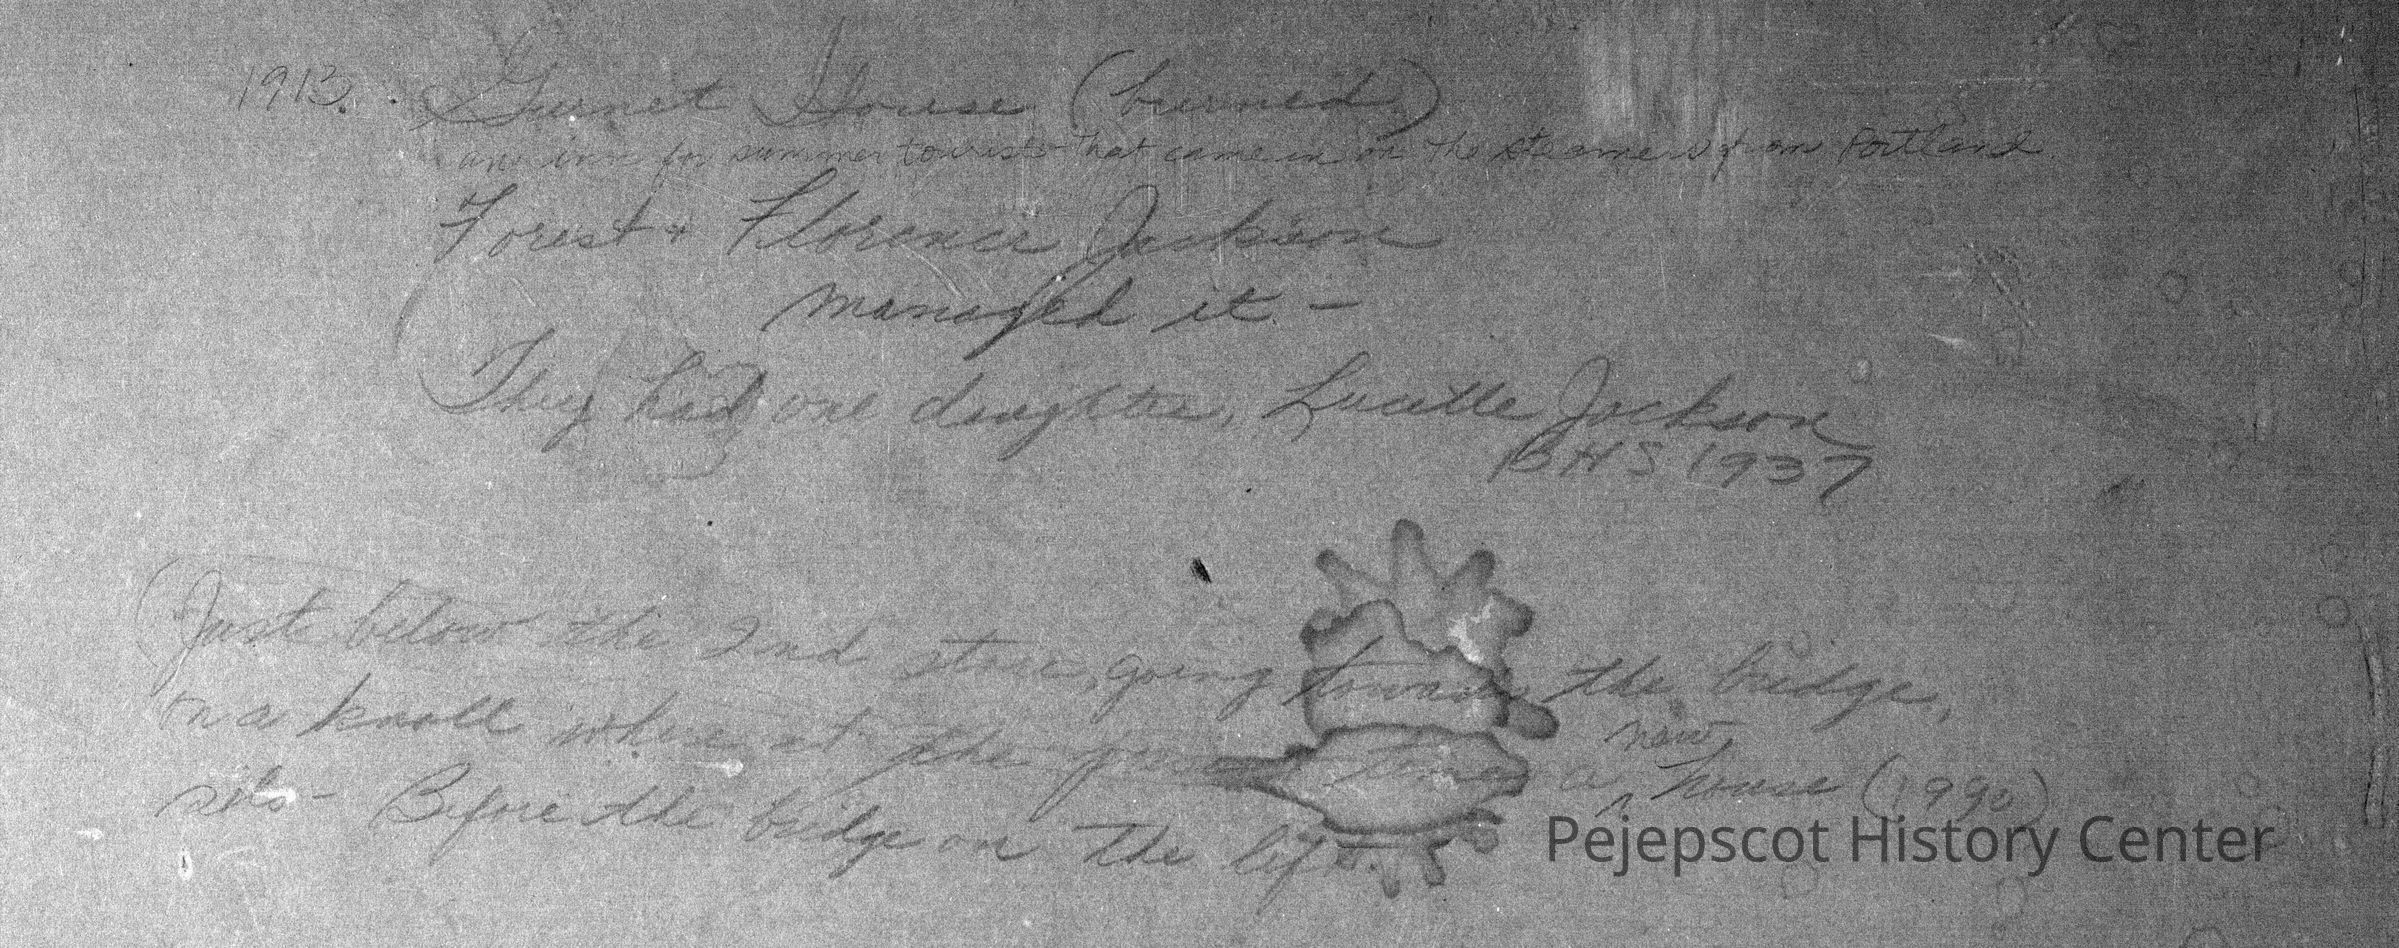 1913. Gurnet House (burned)
an inn for summer tourists that came in on the steamers from Portland.
Forest & Florence Jackson
managed it -
They had one daughter, Lucille Jackson
BHS 1937
(Just below the 2nd store, going towards the bridge,
on a knoll where at the present time a new house (1990)
sits - Before the bridge on the left.
Pejepscot History Center